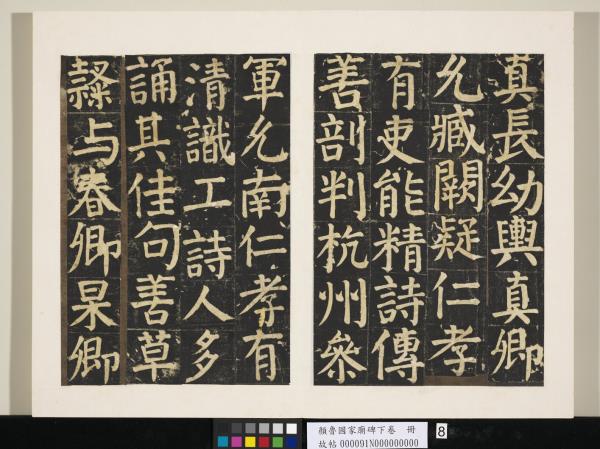 真長幼輿真卿
允臧闕疑仁孝
有吏能精詩傳
善剖判杭州叅
軍允南仁孝有
清識工詩人多
誦其佳句善草
隸与春卿杲卿
顏魯國家廟碑下卷 冊
故帖 000091N000000000
8